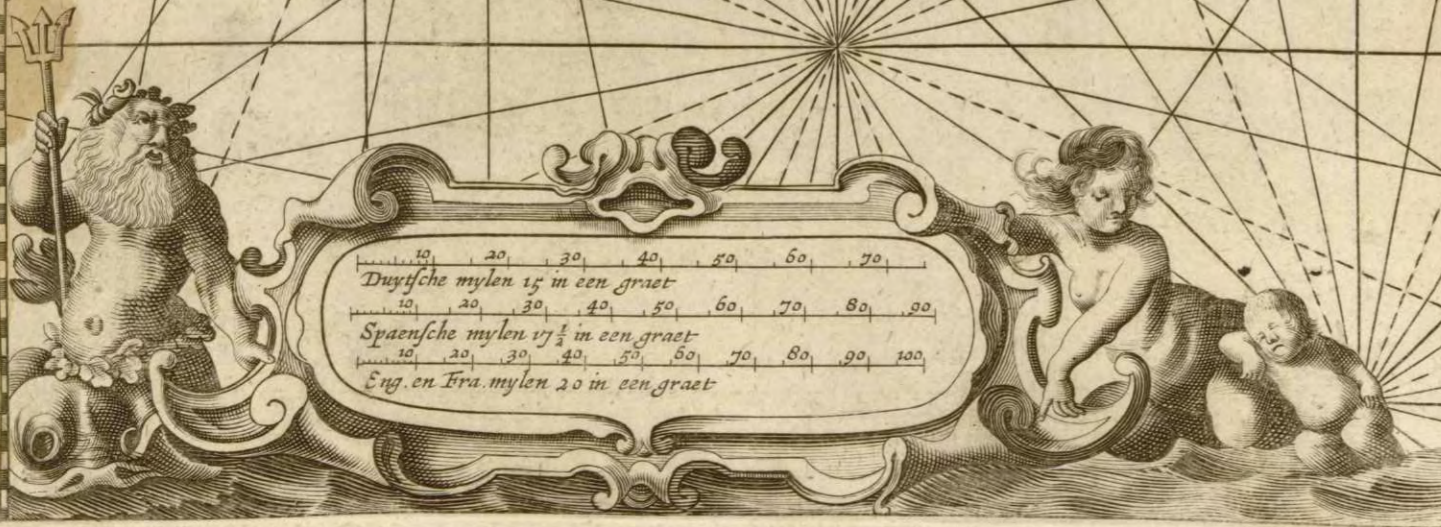 10 20 30 40 50 60 70
Duytſche mylen 15 in een graet
10 20 30 40 50 60 70 80 90
Spaenſche mylen 17 1/2 in een graet
10 20 30 40 50 60 70 80 90 100
Eng. en Fra. mylen 20 in een graet